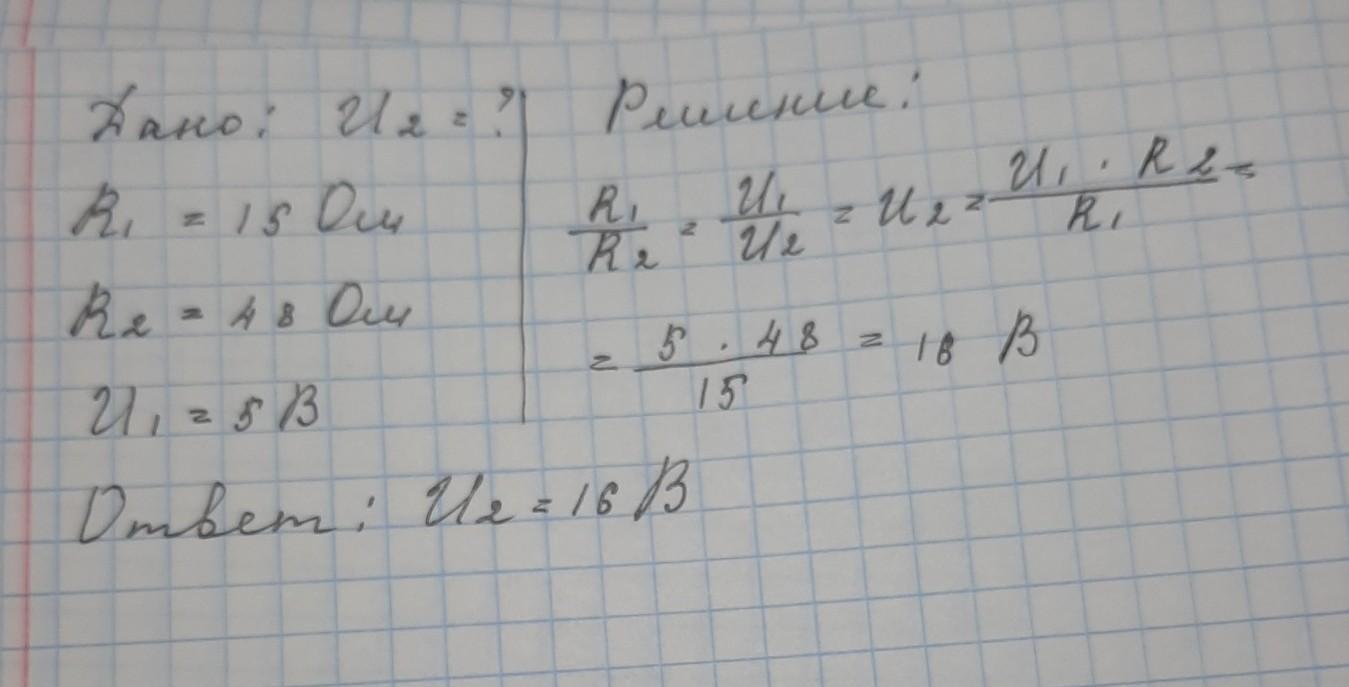 Дано: U2 = ?
R1 = 15 Ом
R2 = 48 Ом
U1 = 5 В
Решение:
R1/R2 = U1/U2 = U2 = U1 · R2/R1 =
= 5 · 48/15 = 16 В
Ответ: U2 = 16 В